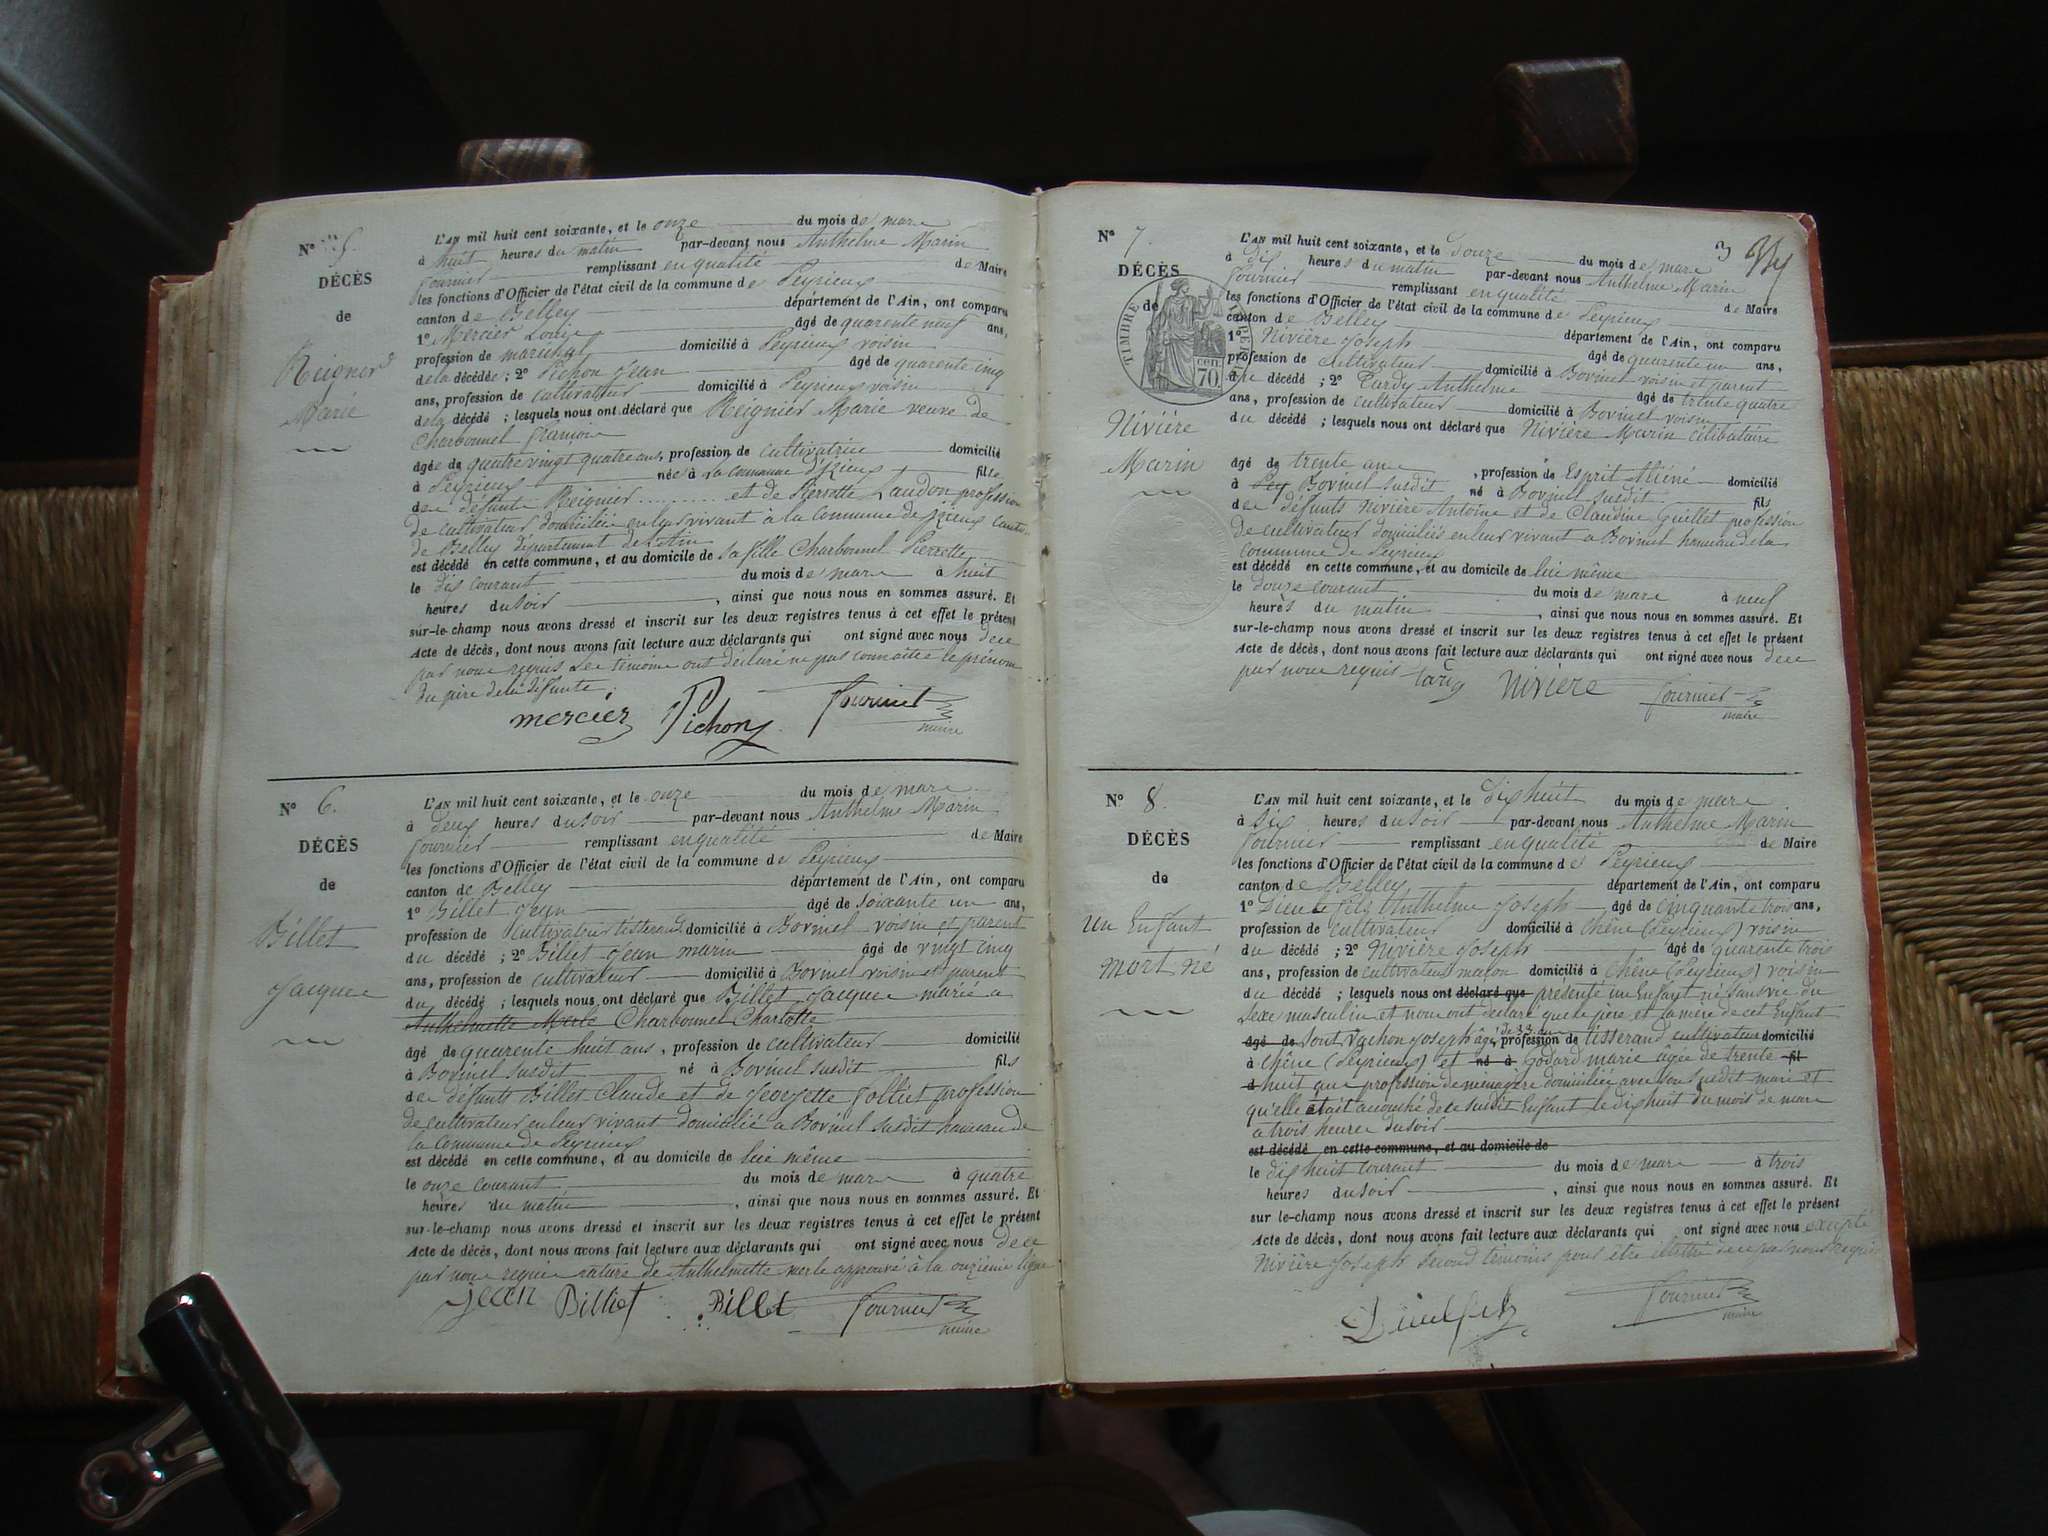 N° 5.
DÉCÈS
de
Reignier
Marie
L'AN mil huit cent soixante, et le onze du mois de mars
à huit heures du matin par-devant nous Anthelme Marin
Fournier remplissant en qualité de Maire
les fonctions d'Officier de l'état civil de la commune de Peyrieux
canton de Belley département de l'Ain, ont comparu
1° Mercier Louis âgé de quarente neuf ans,
profession de marichal domicilié à Peyrieux voisin
de la décédée ; 2° Pichon Jean âgé de quarente cinq
ans, profession de cultivateur domicilié à Peyrieux voisin
de la décédé ; lesquels nous ont déclaré que Reignier Marie veuve de
Charbonnel françois
âgée de quatre vingt quatre ans, profession de cultivatrice domicilié
à Peyrieux née à la commune d'Izieu fille
des défunts Reignier ......... et de Pierrotte Laudon profession
de cultivateurs domiciliés en leur vivant à la commune de Izieu canton
de Belley département de l'Ain
est décédé en cette commune, et au domicile de sa fille Charbonnel Pierrotte
le dix courant du mois de mars à huit
heures du soir , ainsi que nous nous en sommes assuré. Et
sur-le-champ nous avons dressé et inscrit sur les deux registres tenus à cet effet le présent
Acte de décès, dont nous avons fait lecture aux déclarants qui ont signé avec nous de ce
par nous requis Les timoins ont déclaré ne pas connaître le prénom
du père de la défunte.
mercier Pichon Fournier
maire
N° 6.
DÉCÈS
de
Billet
Jacques
L'AN mil huit cent soixante, et le onze du mois de mars
à deux heures du soir par-devant nous Anthelme Marin
Fournier remplissant en qualité de Maire
les fonctions d'Officier de l'état civil de la commune de Peyrieux
canton de Belley département de l'Ain, ont comparu
1° Billet Jean âgé de soixante un ans,
profession de Cultivateur tisserand domicilié à Bovinel voisin et parent
du décédé ; 2° Billet Jean marin âgé de vingt cinq
ans, profession de cultivateur domicilié à Bovinel voisin et parent
du décédé ; lesquels nous ont déclaré que Billet Jacques marié a
Anthelmette Merle Charbonnel Charlotte
âgé de quarente huit ans, profession de cultivateur domicilié
à Bovinel susdit né à Bovinel susdit fils
des défunts Billet Claude et de Georgette Folliet profession
de cultivateurs en leur vivant domicilié a Bovinel susdit hameau de
la commune de Peyrieux
est décédé en cette commune, et au domicile de lui même
le onze courant du mois de mars à quatre
heures du matin , ainsi que nous nous en sommes assuré. Et
sur-le-champ nous avons dressé et inscrit sur les deux registres tenus à cet effet le présent
Acte de décès, dont nous avons fait lecture aux déclarants qui ont signé avec nous de ce
par nous requis rature de Anthelmette merle approuvé à la onzième ligne
jean Billiet Billet Fournier
maire
3
N° 7.
DÉCÈS
de
TIMBRE IMPÉRIAL
70 cen
Nivière
Marin
L'AN mil huit cent soixante, et le douze du mois de mars
à dix heures du matin par-devant nous Anthelme Marin
Fournier remplissant en qualité de Maire
les fonctions d'Officier de l'état civil de la commune de Peyrieux
canton de Belley département de l'Ain, ont comparu
1° Nivière Joseph âgé de quarente un ans,
profession de cultivateur domicilié à Bovinel voisin et parent
du décédé ; 2° Tardy Anthelme âgé de trente quatre
ans, profession de cultivateur domicilié à Bovinel voisin
du décédé ; lesquels nous ont déclaré que Nivière Marin célibataire
âgé de trente ans , profession de Esprit Aliéné domicilié
à Pey Bovinel susdit né à Bovinel susdit fils
des défunts Nivière Antoine et de Claudine Guillet profession
de cultivateurs domiciliés en leur vivant a Bovinel hameau de la
commune de Peyrieux
est décédé en cette commune, et au domicile de lui même
le douze courant du mois de mars à neuf
heures du matin , ainsi que nous nous en sommes assuré. Et
sur-le-champ nous avons dressé et inscrit sur les deux registres tenus à cet effet le présent
Acte de décès, dont nous avons fait lecture aux déclarants qui ont signé avec nous de ce
par nous requis tardy Nivière Fournier
maire
N° 8.
DÉCÈS
de
Un Enfant
mort né
L'AN mil huit cent soixante, et le dix huit du mois de mars
à six heures du soir par-devant nous Anthelme Marin
Fournier remplissant en qualité de Maire
les fonctions d'Officier de l'état civil de la commune de Peyrieux
canton de Belley département de l'Ain, ont comparu
1° Dieu le fils Anthelme Joseph âgé de cinquante trois ans,
profession de cultivateur domicilié à Chêne (Peyrieux) voisin
du décédé ; 2° Nivière Joseph âgé de quarente trois
ans, profession de cultivateur maçon domicilié à Chêne (Peyrieux) voisin
du décédé ; lesquels nous ont déclaré que présenté un Enfant né sans vie du
sexe masculin et nous ont déclaré que le père et la mère de cet Enfant
âgé de sont Vachon Joseph âgé de 33 ans profession de tisserand cultivateur domicilié
à Chêne (Peyrieux) et né à Godard marie âgée de trente fil
d huit ans profession de ménagère domiciliée avec son susdit mari et
qu'elle était accouché de ce susdit Enfant le dix huit du mois de mars
a trois heures du soir
est décédé en cette commune, et au domicile de
le dix huit courant du mois de mars à trois
heures du soir , ainsi que nous nous en sommes assuré. Et
sur le-champ nous avons dressé et inscrit sur les deux registres tenus à cet effet le présent
Acte de décès, dont nous avons fait lecture aux déclarants qui ont signé avec nous excepté
Nivière Joseph second timoins pour être illettré de ce par nous requis
Dieulefils Fournier
maire